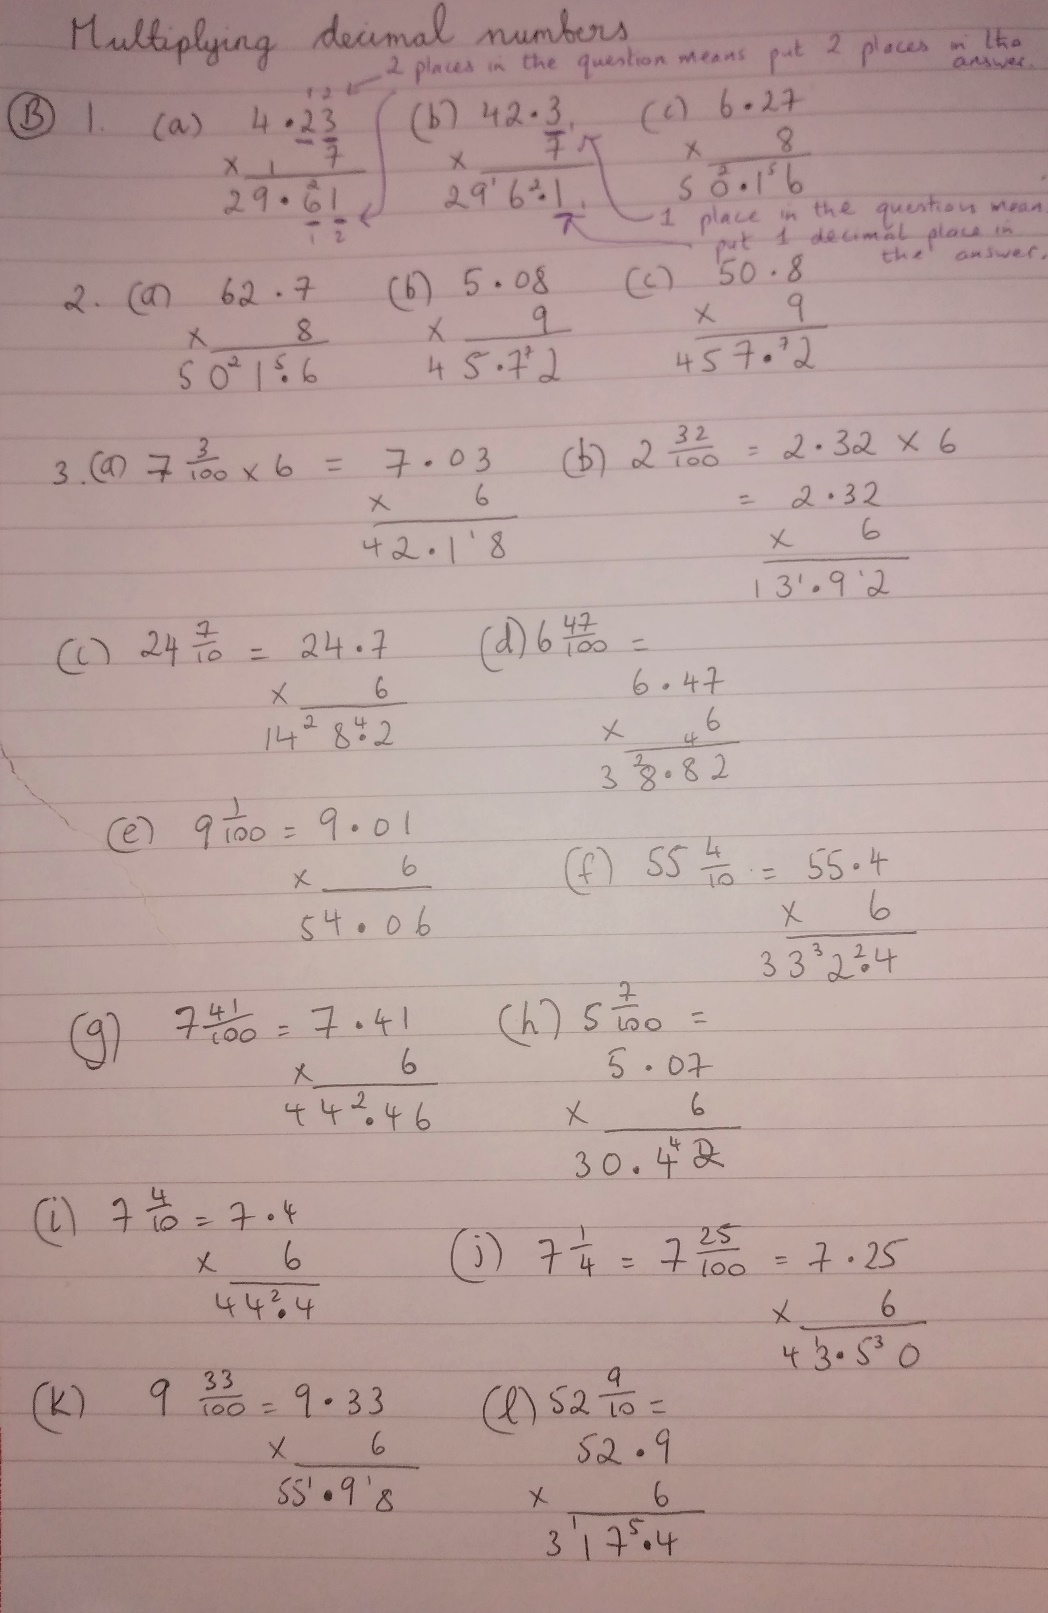 Multiplying decimal numbers
2 places in the question means put 2 places in the answer.
(B) 1. (a) 4.23 × 7 = 29.61
(b) 42.3 × 7 = 296.1
(c) 6.27 × 8 = 50.16
1 place in the question mean
put 1 decimal place in
the answer.
2. (a) 62.7 × 8 = 501.6
(b) 5.08 × 9 = 45.72
(c) 50.8 × 9 = 457.2
3. (a) 7 3/100 × 6 = 7.03
× 6
42.18
(b) 2 32/100 = 2.32 × 6
= 2.32
× 6
13.92
(c) 24 7/10 = 24.7
× 6
148.2
(d) 6 47/100 =
6.47
× 6
38.82
(e) 9 1/100 = 9.01
× 6
54.06
(f) 55 4/10 = 55.4
× 6
332.4
(g) 7 41/100 = 7.41
× 6
44.46
(h) 5 7/100 =
5.07
× 6
30.42
(i) 7 4/10 = 7.4
× 6
44.4
(j) 7 1/4 = 7 25/100 = 7.25
× 6
43.50
(k) 9 33/100 = 9.33
× 6
55.98
(l) 52 9/10 =
52.9
× 6
317.4